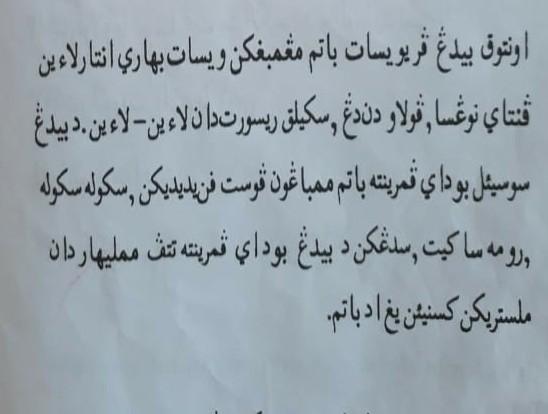 اونتوق بيدڠ ڤريويسات باتم مڠمبڠكن ويسات بهاري انتارلاءين
ڤنتاي نوڠسا,ڤولاو دندڠ ,سكيلق ريسورت دان لاءين–لاءين.دبيدڠ
سوسيئل بوداي ڤمرينته باتم ممباڠون ڤوست ڤنديديكن ,سكوله سكوله
,رومه ساكيت ,سدڠكن د بيدڠ بوداي ڤمرينته تتڤ ممليهار دان
ملستريكن كسنيئن يڠ اد باتم.